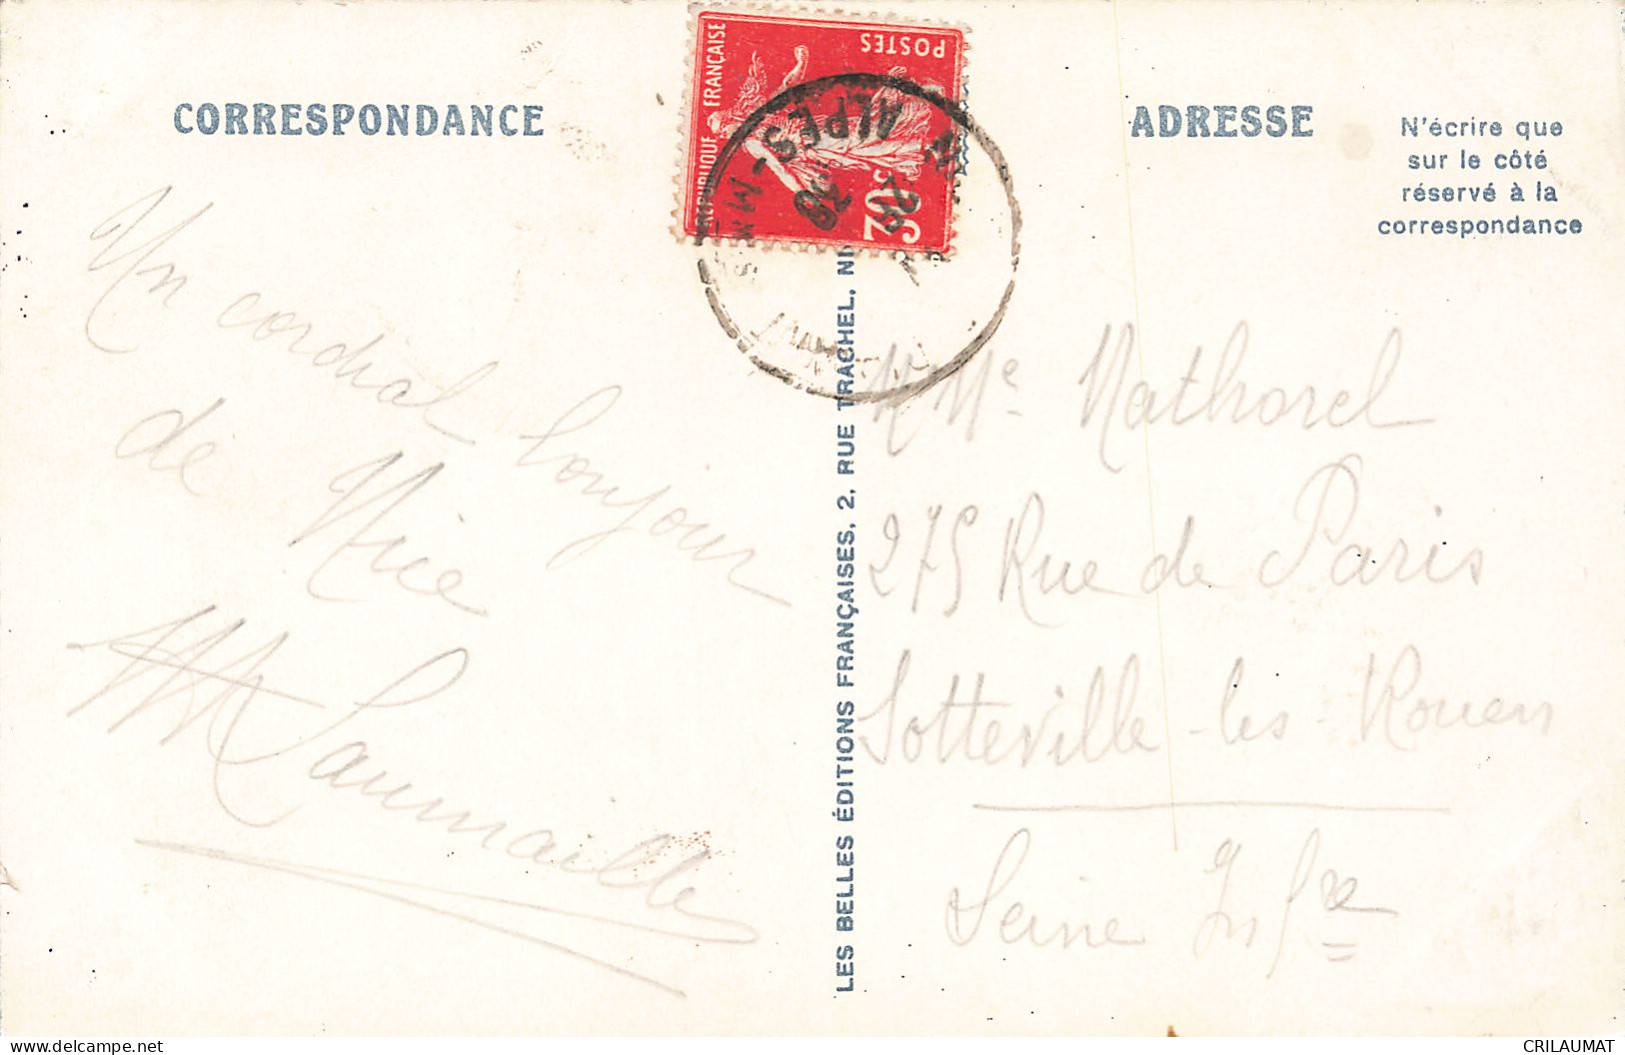 CORRESPONDANCE
ADRESSE
N'écrire que
sur le côté
réservé à la
correspondance
RÉPUBLIQUE FRANÇAISE
POSTES
20c
ALPES-MMES
26
38
LES BELLES ÉDITIONS FRANÇAISES, 2, RUE TRACHEL, NI
Un cordial bonjour
de Nice
Laumaille
Mme Mathorel
275 Rue de Paris
Sotteville-les-Rouen
Seine Infre
CRILAUMAT